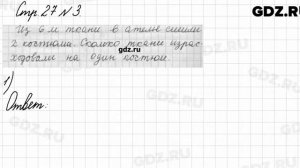 Стр. 27 №3.
GDZ.RU
Из 6 м ткани в ателье сшили
2 костюма. Сколько ткани израс-
ходовали на один костюм.
gdz.ru
1)
Ответ:
GDZ.RU